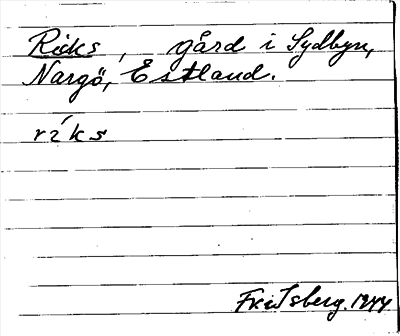 Ricks, gård i Sydbyn,
Nargö, Estland.
ríks
Fritsberg. 1944